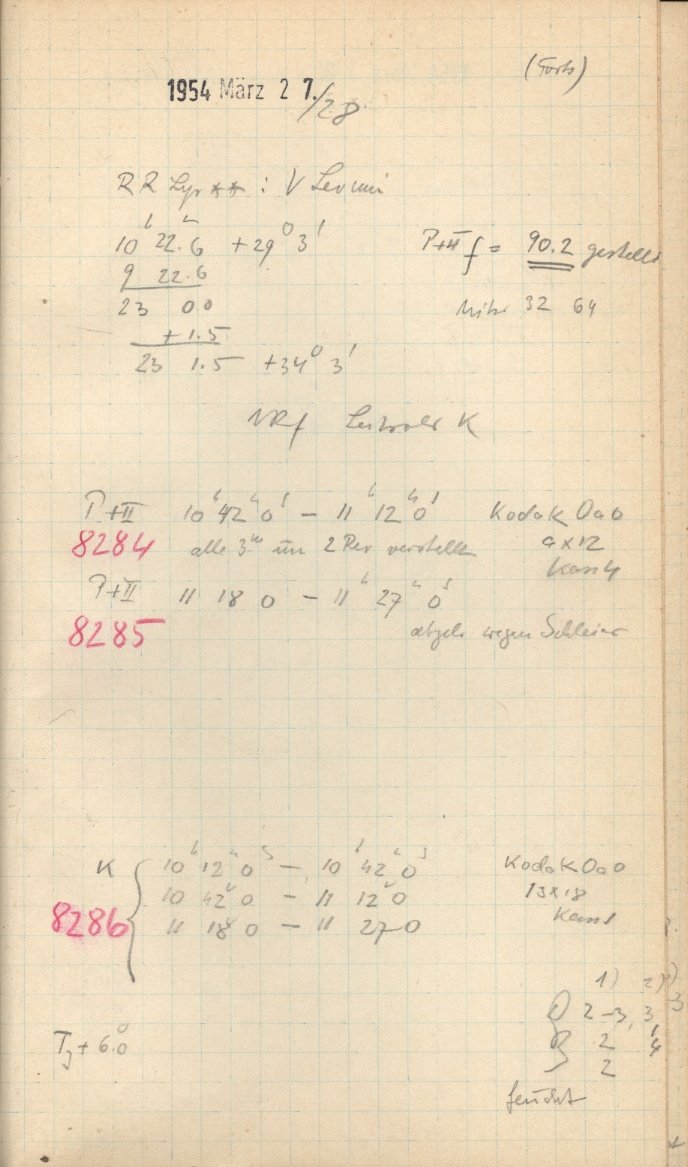 (Forts)
1954 März 2 7./28
RR Lyr ** : V Leo min
10ʰ 22.6 +29⁰ 3'
9 22.6
23 0.0
+1.5
23 1.5 +34⁰ 3'
P+II f = 90.2 gestellt
32 64
Leitrohr K
P+II 10ʰ 42ᵐ 0ˢ – 11ʰ 12ᵐ 0ˢ Kodak Oa0
8284 alle 3ᵐ um 2 Rev verstellt 9x12
Kass 4
P+II 11 18 0 – 11ʰ 27ᵐ 0ˢ
8285 abgebr wegen Schleier
K 10ʰ 12ᵐ 0ˢ – 10ʰ 42ᵐ 0ˢ Kodak Oa0
10 42 0 – 11 12 0 13x18
8286 11 18 0 – 11 27 0 Kass 1
1) 2)
2–3, 3
T +6.0⁰ 2 4
2
feucht